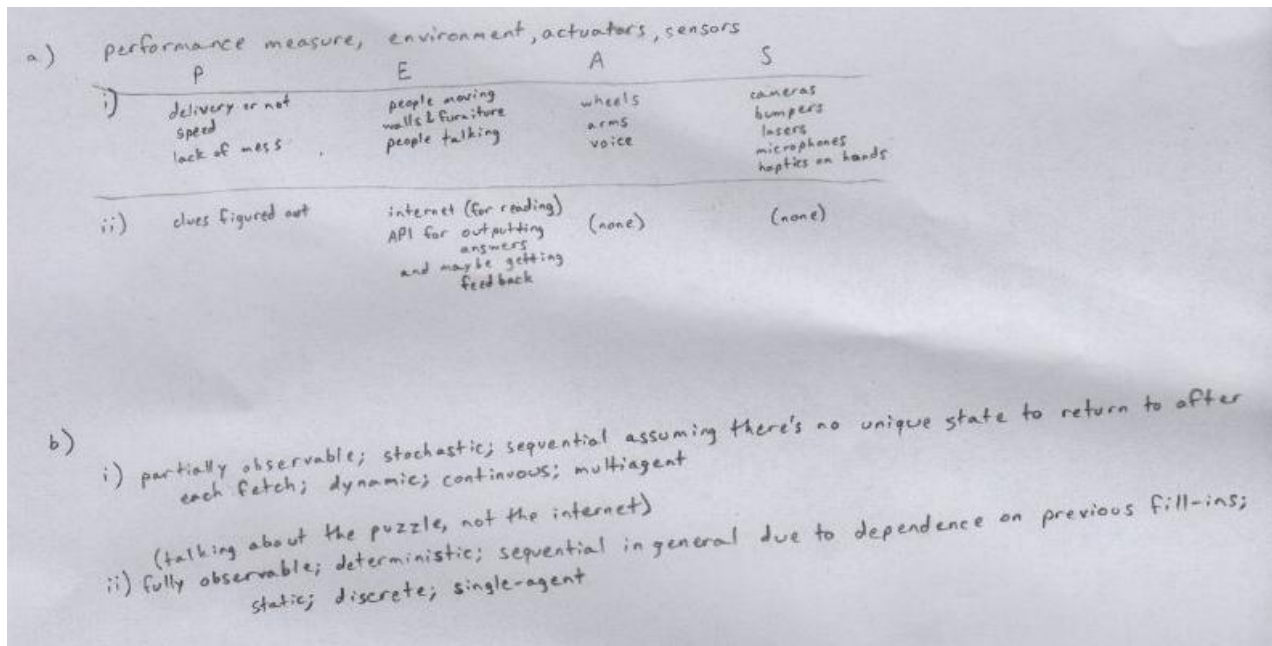 a) performance measure, environment, actuators, sensors
P E A S
i) delivery or not people moving wheels cameras
speed walls & furniture arms bumpers
lack of mess people talking voice lasers
microphones
haptics on hands
ii) clues figured out internet (for reading) (none) (none)
API for outputting
answers
and maybe getting
feedback
b)
i) partially observable; stochastic; sequential assuming there's no unique state to return to after
each fetch; dynamic; continuous; multiagent
(talking about the puzzle, not the internet)
ii) fully observable; deterministic; sequential in general due to dependence on previous fill-ins;
static; discrete; single-agent